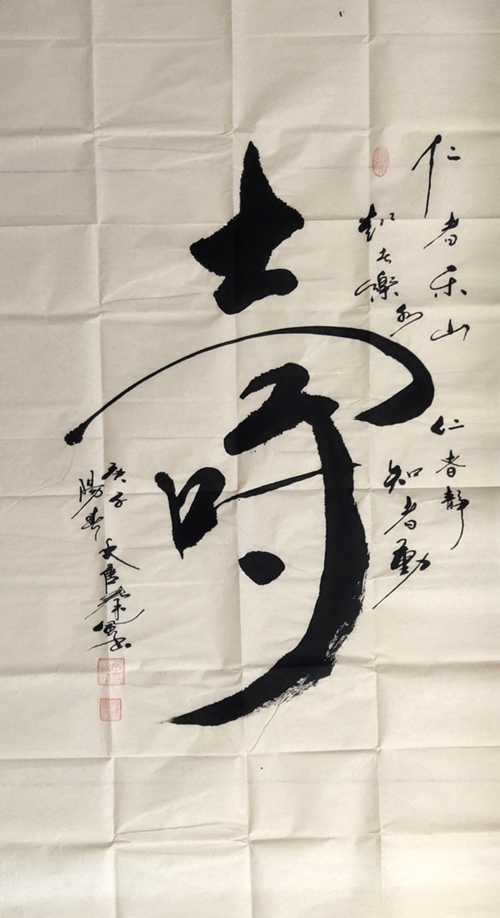 仁者乐山
知者樂水
仁者靜
知者動
壽
庚子
陽春